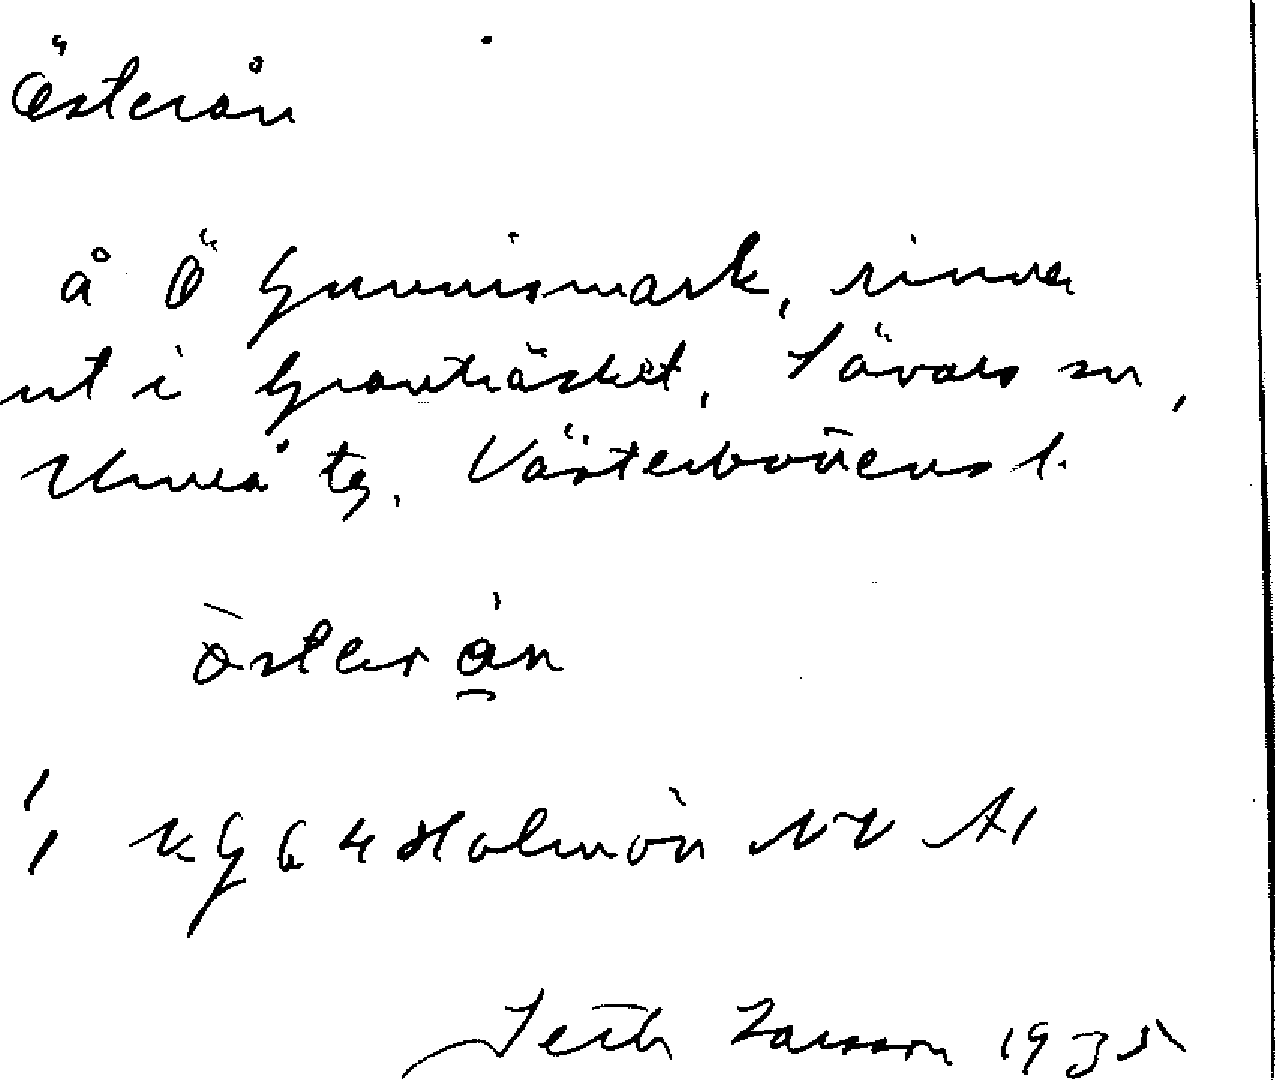 Österån
å Ö Gunnismark, rinner
ut i Granträsket, Sävars sn,
Umeå tg, Västerbottens l.
österån
kg 64 Holmön NV
Larsson 1935